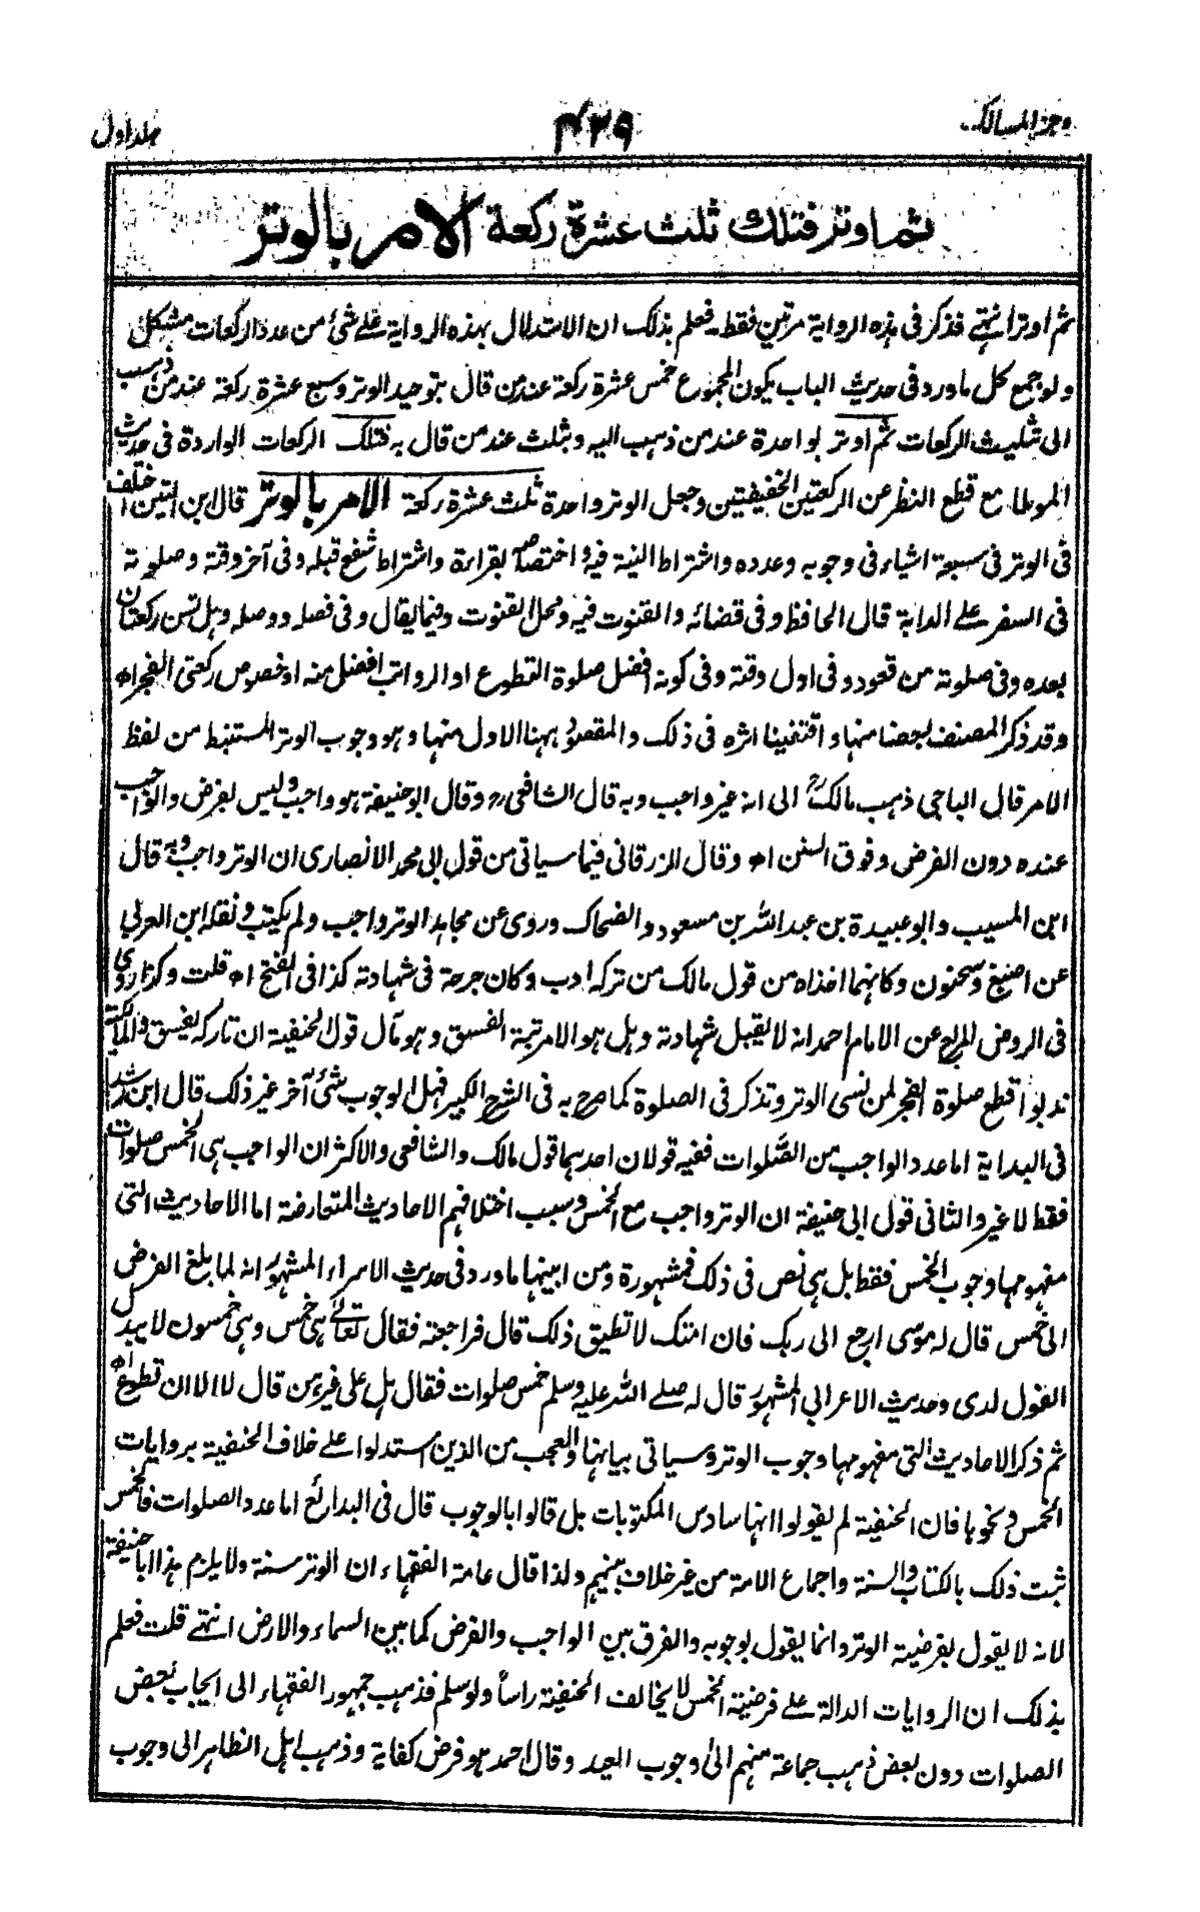 اوجز المسالك
٤٢٩
جلد اول
ثم اوتر فتلك ثلث عشرة ركعة الامر بالوتر
ثم اوتر انتهى فذكر فى هذه الرواية مرتين فقط فعلم بذلك ان الاستدلال بهذه الرواية على شئ من عدد الركعات مشكل
ولو جمع كل ما ورد فى حديث الباب يكون المجموع خمس عشرة ركعة عند من قال بتوحيد الوتر وسبع عشرة ركعة عند من ذهب
الى تثليث الركعات ثم اوتر بواحدة عند من ذهب اليه وبثلث عند من قال به فتلك الركعات الواردة فى حديث
الموطا مع قطع النظر عن الركعتين الخفيفتين وجعل الوتر واحدة ثلث عشرة ركعة الامر بالوتر قال ابن التين اختلف
فى الوتر فى سبعة اشياء فى وجوبه وعدده واشتراط النية فيه واختصاصه بقراءة واشتراط شفع قبله وفى آخر وقته وصلوته
فى السفر على الدابة قال الحافظ وفى قضائه والقنوت فيه ومحل القنوت وفيما يقال وفى فصله ووصله وهل تسن ركعتان
بعده وفى صلوته من قعود وفى اول وقته وفى كونه افضل صلوة التطوع او الرواتب افضل منه او خصوص ركعتى الفجر اه
وقد ذكر المصنف بعضا منها واقتفينا اثره فى ذلك والمقصود ههنا الاول منها وهو وجوب الوتر المستنبط من لفظ
الامر قال الباجى ذهب مالك الى انه غير واجب وبه قال الشافعى وقال ابو حنيفة هو واجب وليس بفرض والواجب
عنده دون الفرض وفوق السنن اه وقال الزرقانى فيما سياتى من قول ابى محمد الانصارى ان الوتر واجب وبه قال
ابن المسيب وابو عبيدة بن عبدالله بن مسعود والضحاك وروى عن مجاهد الوتر واجب ولم يكتب ونقله ابن العربى
عن اصبغ وسحنون وكانهما اخذاه من قول مالك من تركه ادب وكان جرحة فى شهادته كذا فى الفتح اه قلت وكذا روى
فى الروض المربع عن الامام احمد انه لا يقبل شهادته وهل هو الا مرتبة الفسق وهو مآل قول الحنفية ان تاركه يفسق والمالكية
ندبوا قطع صلوة الفجر لمن نسى الوتر وتذكر فى الصلوة كما صرح به فى الشرح الكبير فهل الوجوب شئ آخر غير ذلك قال ابن رشد
فى البداية اما عدد الواجب من الصلوات ففيه قولان احدهما قول مالك والشافعى والاكثر ان الواجب هى الخمس صلوات
فقط لا غير والثانى قول ابى حنيفة ان الوتر واجب مع الخمس وسبب اختلافهم الاحاديث المتعارضة اما الاحاديث التى
مفهومها وجوب الخمس فقط بل هى نص فى ذلك فمشهورة ومن ابينها ما ورد فى حديث الاسراء المشهور انه لما بلغ الفرض
الى خمس قال له موسى ارجع الى ربك فان امتك لا تطيق ذلك قال فراجعته فقال تعالى هى خمس وهى خمسون لا يبدل
القول لدى وحديث الاعرابى المشهور قال له صلى الله عليه وسلم خمس صلوات فقال هل على غيرهن قال لا الا ان تطوع اه
ثم ذكر الاحاديث التى مفهومها وجوب الوتر وسياتى بيانها والعجب من الذين استدلوا على خلاف الحنفية بروايات
الخمس ونحوها فان الحنفية لم يقولوا انها سادس المكتوبات بل قالوا بالوجوب قال فى البدائع اما عدد الصلوات فالخمس
ثبت ذلك بالكتاب والسنة واجماع الامة من غير خلاف بينهم ولذا قال عامة الفقهاء ان الوتر سنة ولا يلزم هذا ابا حنيفة
لانه لا يقول بفرضية الوتر وانما يقول بوجوبه والفرق بين الواجب والفرض كما بين السماء والارض انتهى قلت فعلم
بذلك ان الروايات الدالة على فرضية الخمس لا يخالف الحنفية راسا ولو سلم فذهب جمهور الفقهاء الى ايجاب بعض
الصلوات دون بعض ذهب جماعة منهم الى وجوب العيد وقال احمد هو فرض كفاية وذهب اهل الظاهر الى وجوب